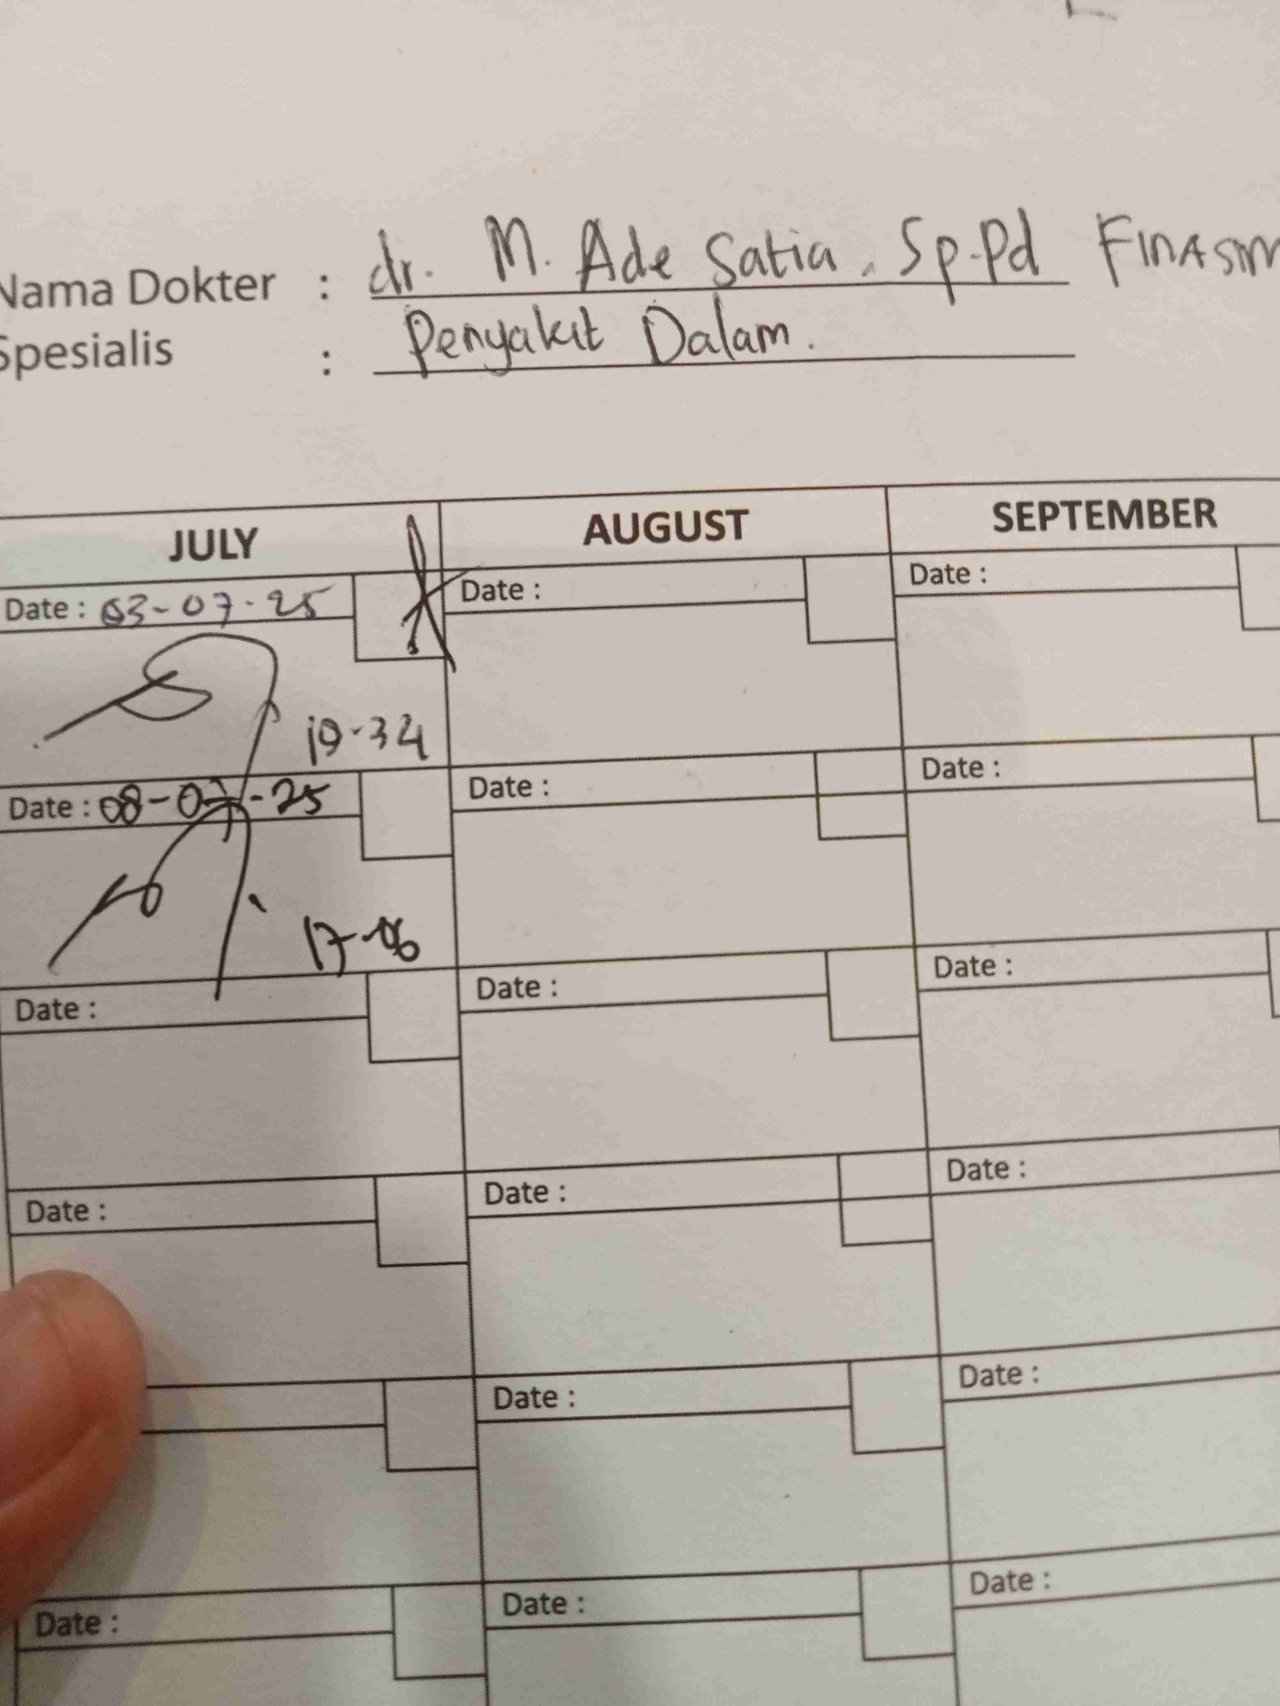 Nama Dokter : dr. M. Ade Satia, Sp.Pd FINASIM
Spesialis : Penyakit Dalam.
JULY AUGUST SEPTEMBER
Date : 03-07-25 Date : Date :
19-34
Date : 08-07-25 Date : Date :
17-06
Date : Date : Date :
Date : Date : Date :
Date : Date :
Date : Date : Date :